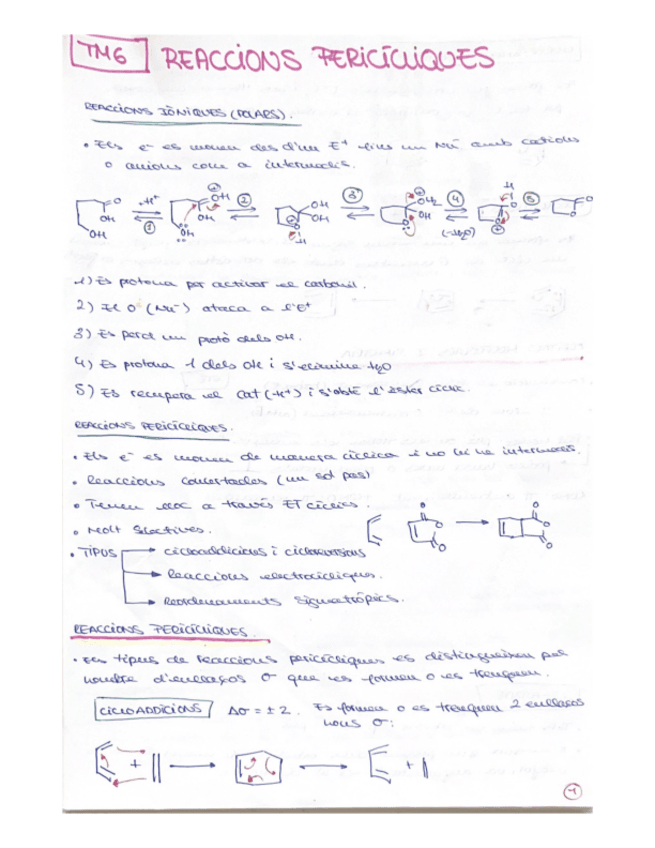 TM6 REACCIONS PERICÍCLIQUES
REACCIONS IÒNIQUES (POLARS).
• Els e⁻ es mouen des d'un E⁺ fins un Nu⁻ amb cations
o anions com a intermedis.
O OH OH
H⁺ ①
⊕ OH OH OH
②
OH OH O H
③
⊕ OH₂ OH O
④ (-H₂O)
H O O
⑤
O O
1) Es protona per activar el carbonil.
2) El O (Nu⁻) ataca a l'E⁺
3) Es perd un protó dels OH.
4) Es protona 1 dels OH i s'elimina H₂O
5) Es recupera el cat (H⁺) i s'obté l'èster cíclic.
REACCIONS PERICÍCLIQUES.
• Els e⁻ es mouen de manera cíclica i no hi ha intermedis.
• Reaccions concertades (un sol pas)
• Tenen lloc a través ET cíclics.
• Molt selectives.
O O O
O O O
• TIPUS
cicloaddicions i cicloreversions
Reaccions electrocícliques.
Reordenaments sigmatròpics.
REACCIONS PERICÍCLIQUES.
• Els tipus de reaccions pericícliques es distingueixen pel
nombre d'enllaços σ que es formen o es trenquen.
CICLOADDICIONS Δσ = ± 2. Es formen o es trenquen 2 enllaços
nous σ:
+ +
1